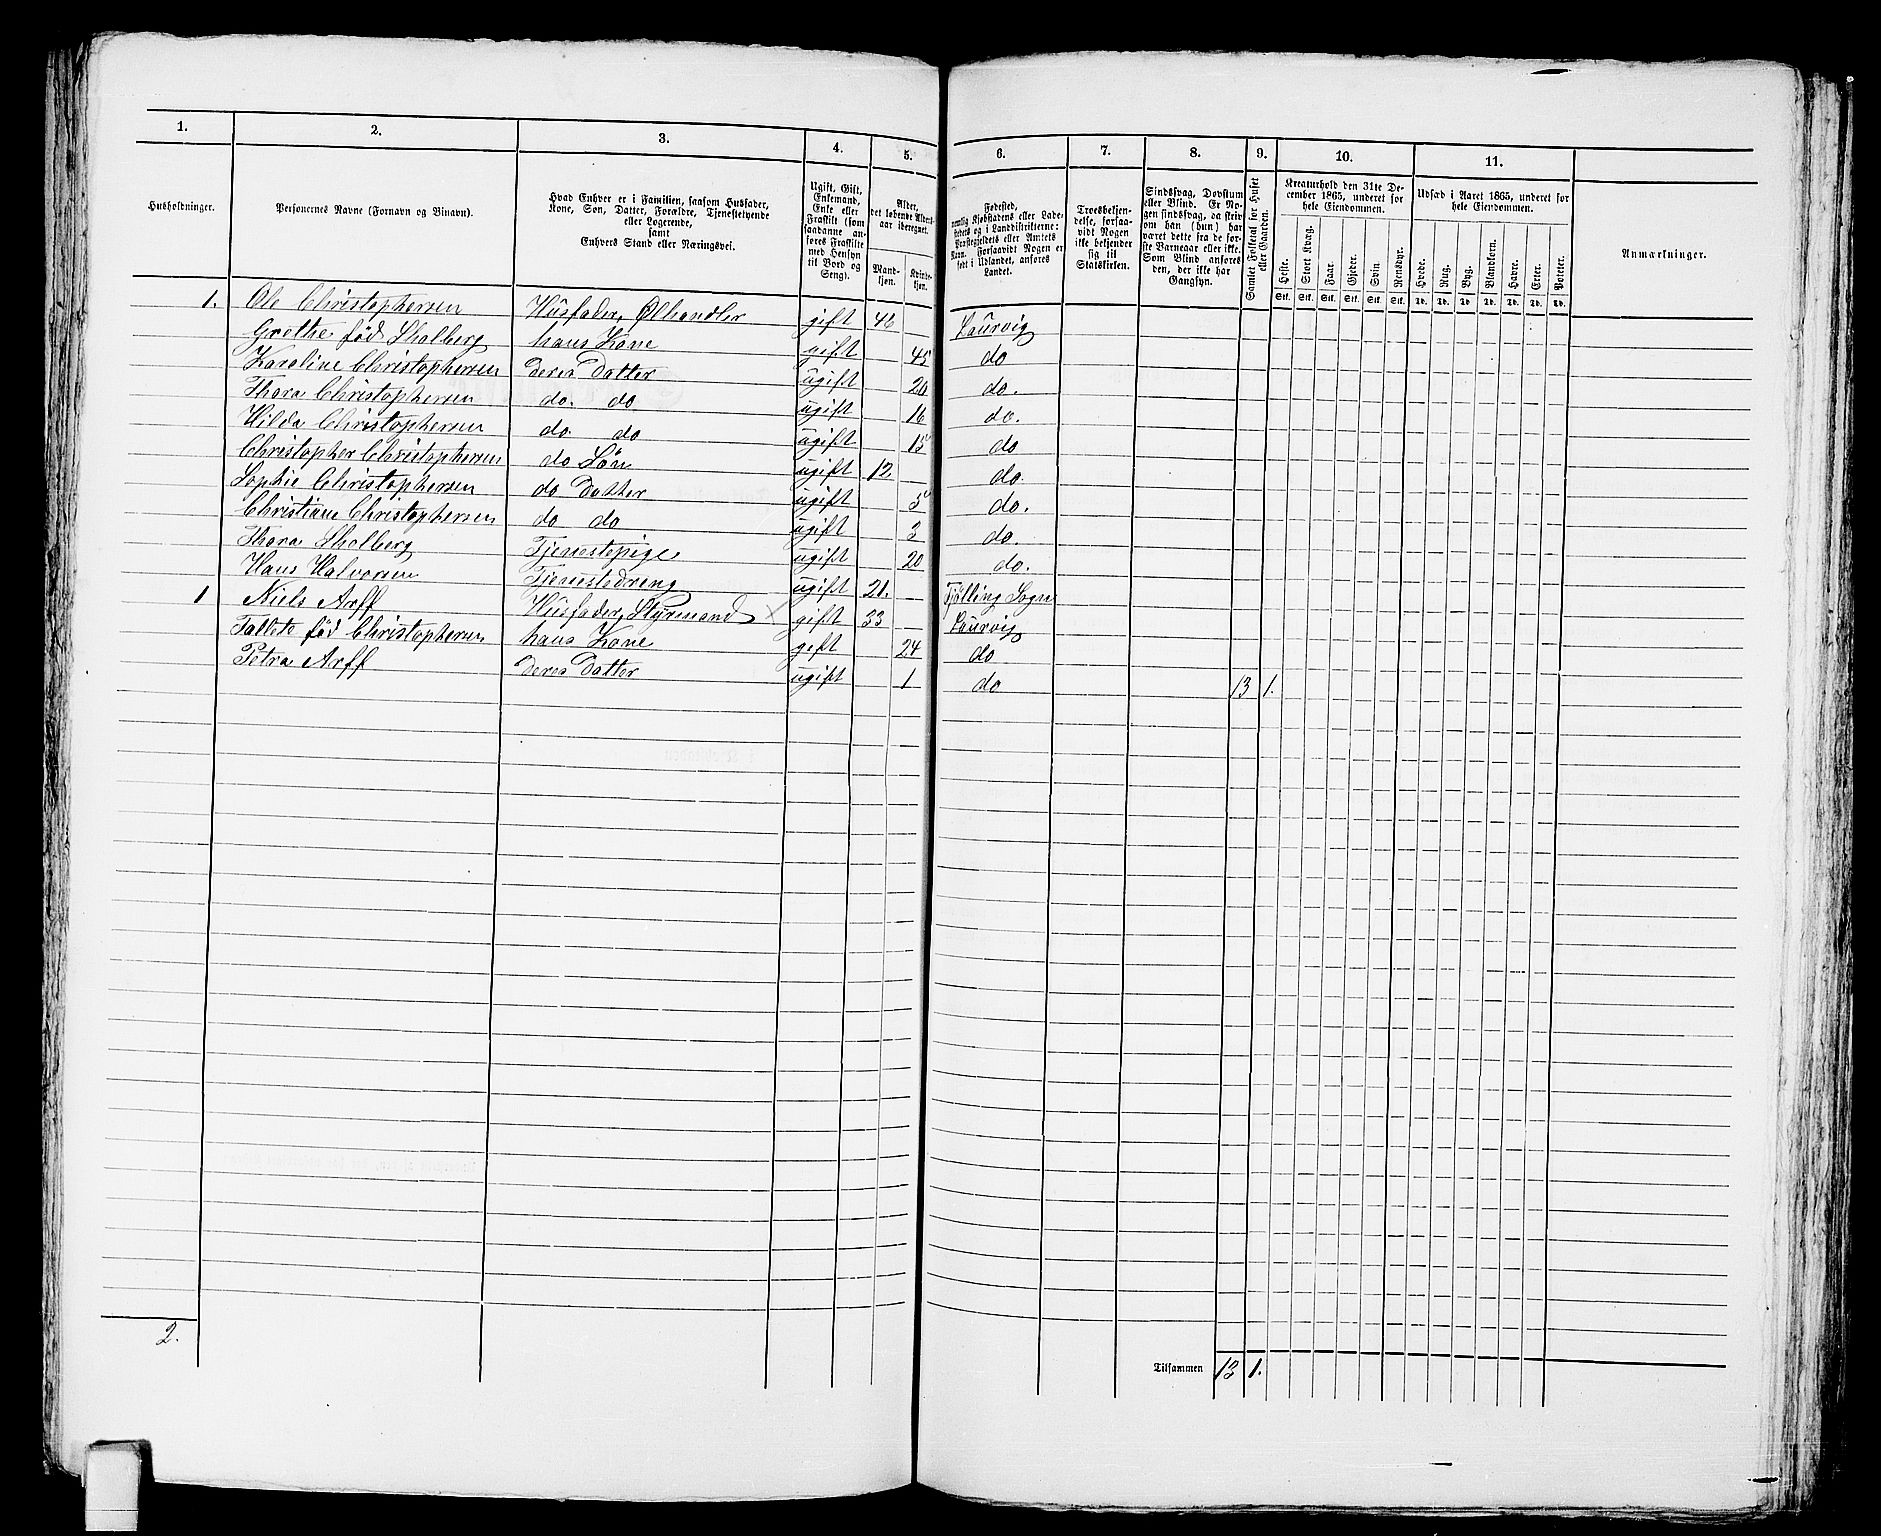 1. 2. 3. 4. 5. 6. 7. 8. 9. 10. 11.
Husholdninger.
Personernes Navne (Fornavn og Binavn).
Hvad Enhver er i Familien, saasom Husfader,
Kone, Søn, Datter, Forældre, Tjenestetyende
eller Logerende,
samt
Enhvers Stand eller Næringsvei.
Ugift, Gift,
Enkemand,
Enke eller
Fraskilt (som
saadanne an-
føres Fraskilte
med Hensyn
til Bord og
Seng).
Alder,
det løbende Alders-
aar iberegnet.
Mand-
kjøn.
Kvinde-
kjøn.
Fødested,
nemlig Kjøbstadens eller Lade-
stedets og i Landdistrikterne:
Præstegjeldets eller Amtets
Navn. Forsaavidt Nogen er
født i Udlandet, anføres
Landet.
Troesbekjen-
delse, forsaa-
vidt Nogen
ikke bekjender
sig til
Statskirken.
Sindssvag, Døvstum
eller Blind. Er No-
gen sindssvag, da skriv
om han (hun) har
været dette fra de før-
ste Barneaar eller ikke.
Som Blind anføres
den, der ikke har
Gangsyn.
Samlet Folketal for Huset
eller Gaarden.
Kreaturhold den 31te De-
cember 1865, underet for
hele Eiendommen.
Heste. Stort Kvæg. Faar. Gjeder. Svin. Rensdyr.
Stk. Stk. Stk. Stk. Stk. Stk.
Udsæd i Aaret 1865, underet for
hele Eiendommen.
Hvede. Rug. Byg. Blandkorn. Havre. Erter. Poteter.
Td. Td. Td. Td. Td. Td. Td.
Anmærkninger.
1. Ole Christophersen Husfader, Ølhandler gift 46 Laurvig
Grethe fød Skolberg hans Kone gift 45 do
Karoline Christophersen deres Datter ugift 20 do.
Thora Christophersen do. do ugift 16 do.
Hilda Christophersen do do ugift 15 do
Christopher Christophersen do Søn ugift 12. do.
Sophie Christophersen do Datter ugift 5 do.
Christiane Christophersen do do ugift 3 do.
Thora Skolberg Tjenestepige ugift 20 do.
Hans Halvorsen Tjenestedreng ugift 21. Tjølling Sogn
1 Niels Arff Husfader, Styrmand × gift 33 Laurvig
fød Christophersen hans Kone gift 24 do
Petra Arff deres Datter ugift 1 do 13 1.
2.
Tilsammen 13 1.